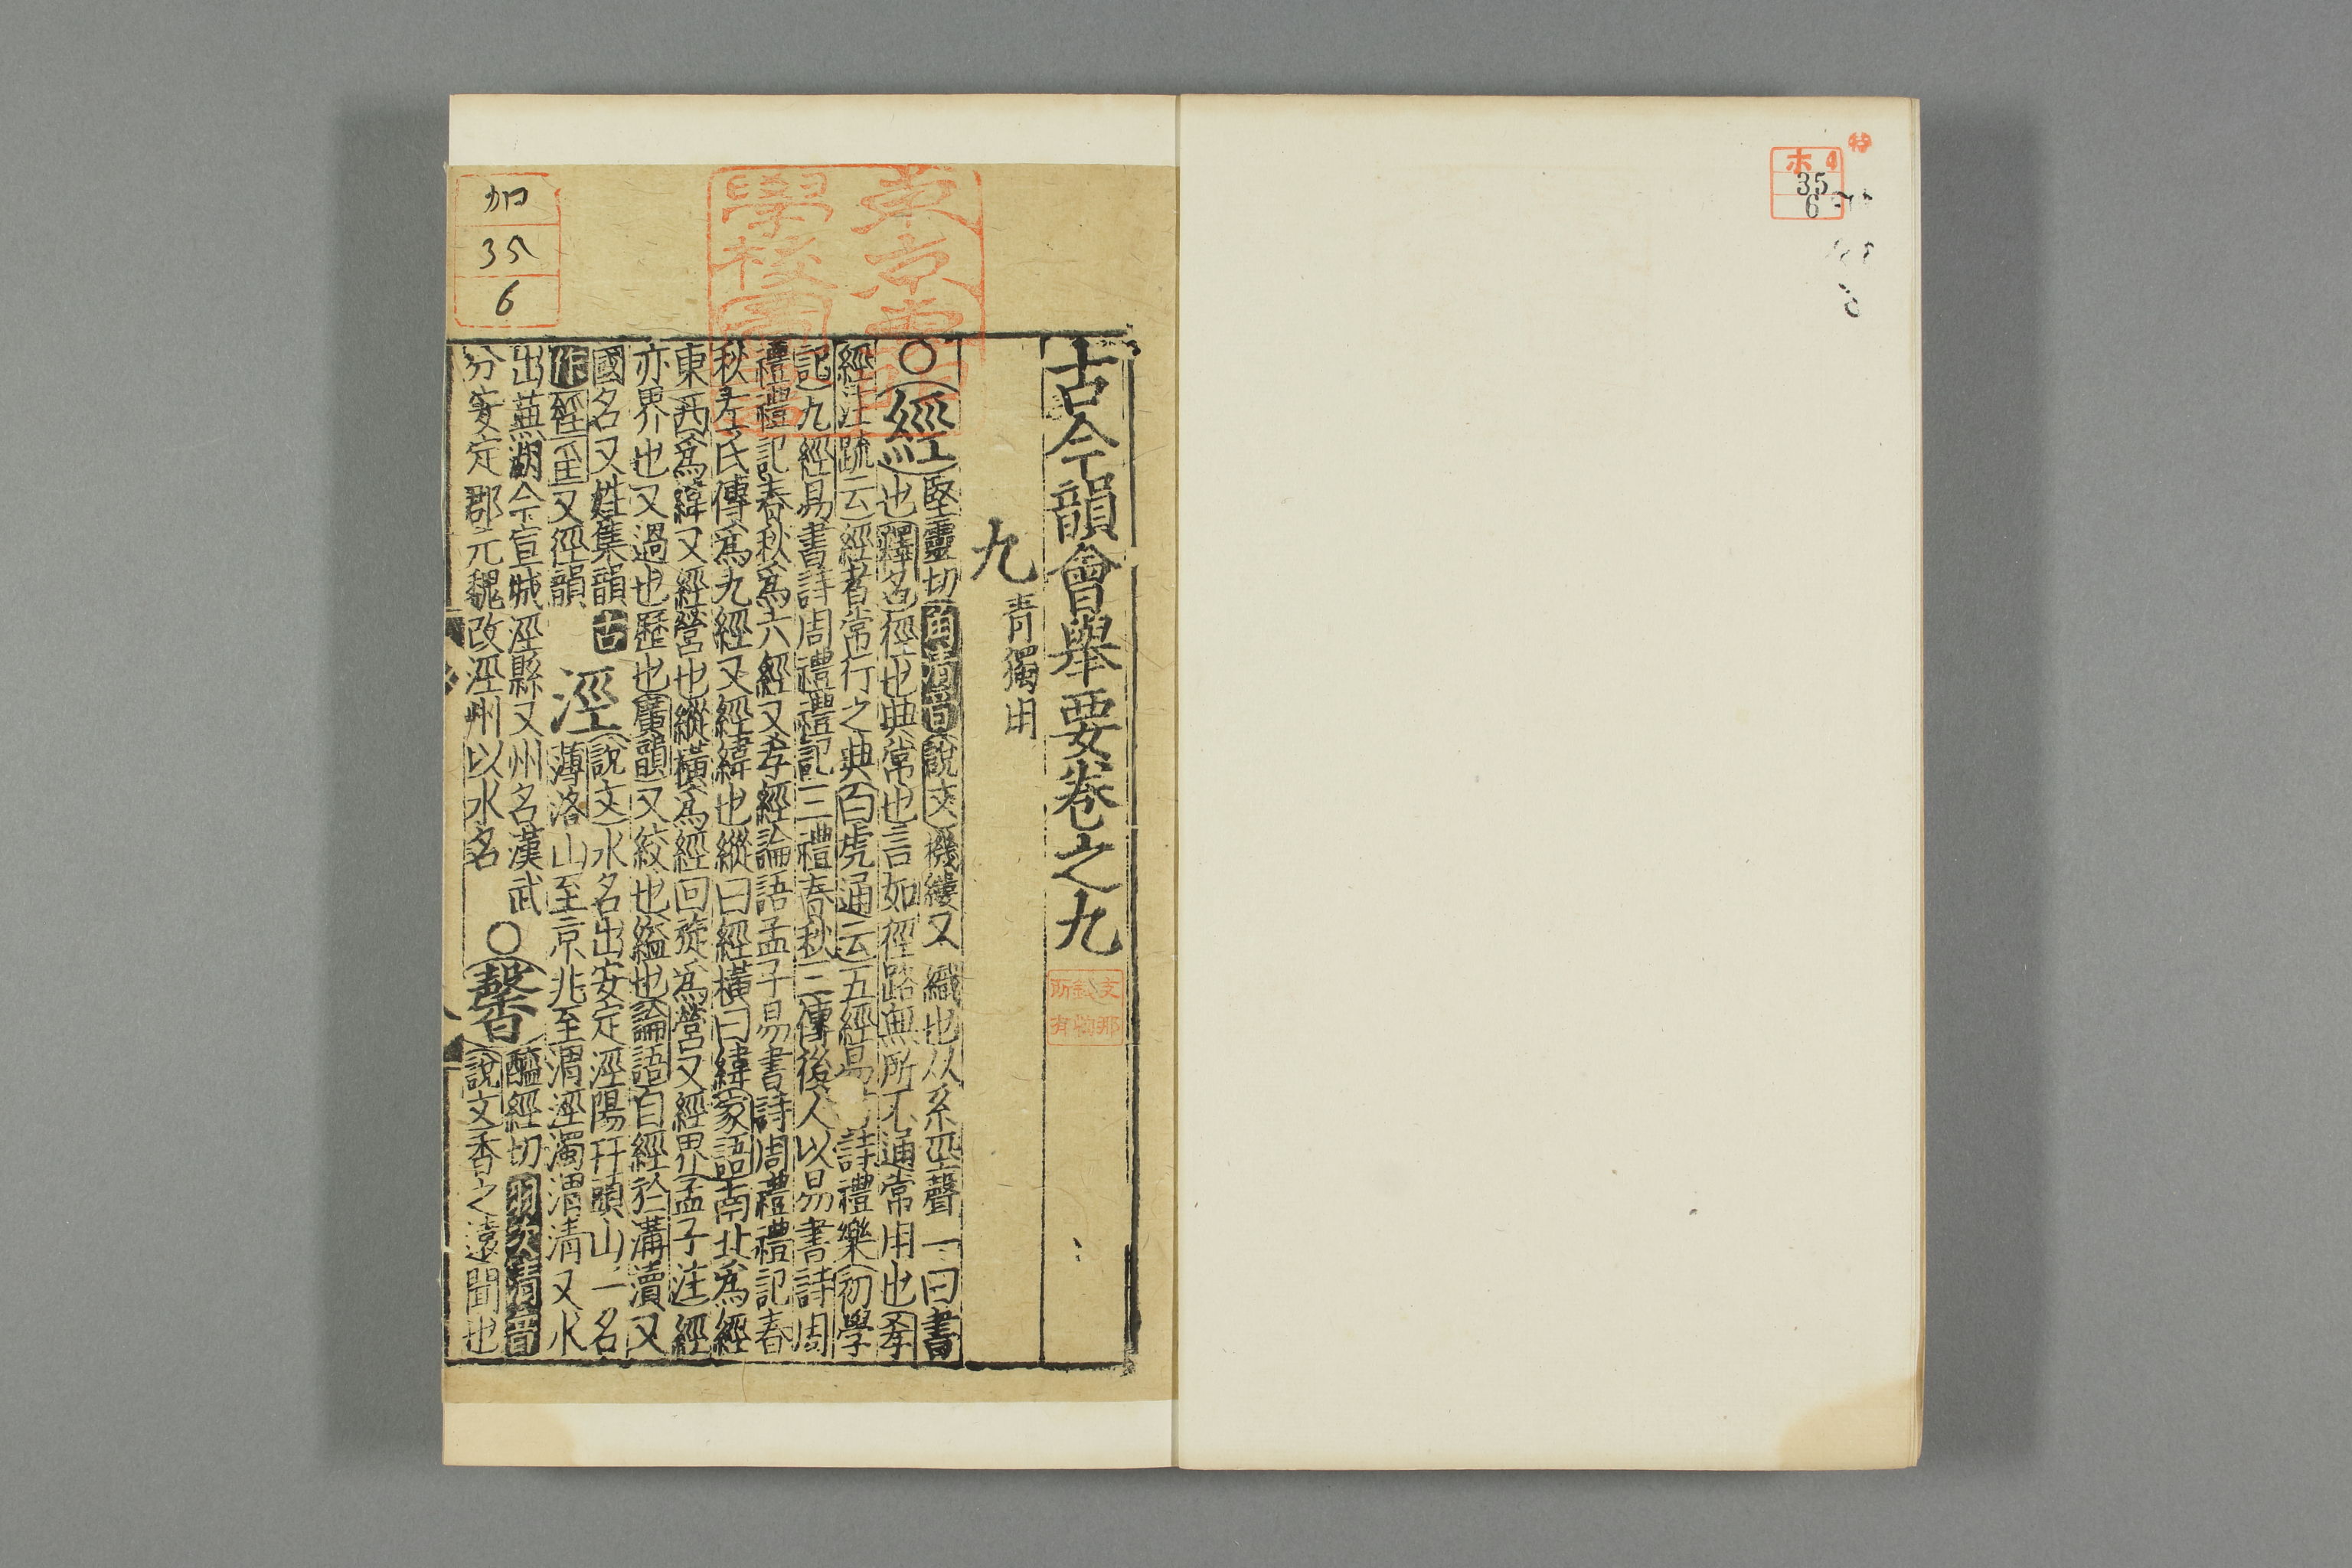 特
ホ 4
35
6
古今韻會舉要卷之九
支那
錢恂
所有
九 青獨用
○經
堅靈切角清音說文機縷又織也从糸巠聲一曰書
也釋名徑也典常也言如徑路無所不通常用也孝
經注疏云經者常行之典百虎通云五經易 詩禮樂初學
記九經易書詩周禮禮記三禮春秋三傳後人以易書詩周
禮禮記春秋為六經又孝經論語孟子易書詩周禮禮記春
秋左氏傳為九經又經緯也縱曰經橫曰緯家語南北為經
東西為緯又經營也縱橫為經回旋為營又經界孟子注經
亦界也又過也歷也廣韻又絞也縊也論語自經於溝瀆又
國名又姓集韻古
作經坙又徑韻
涇
說文水名出安定涇陽幵頭山一名
薄洛山至京兆至渭涇濁渭清又水
出蕪湖今宣城涇縣又州名漢武
分安定郡元魏改涇州以水名
○馨
醯經切羽次清音
說文香之遠聞也
東京專門
學校圖書
加
35
6